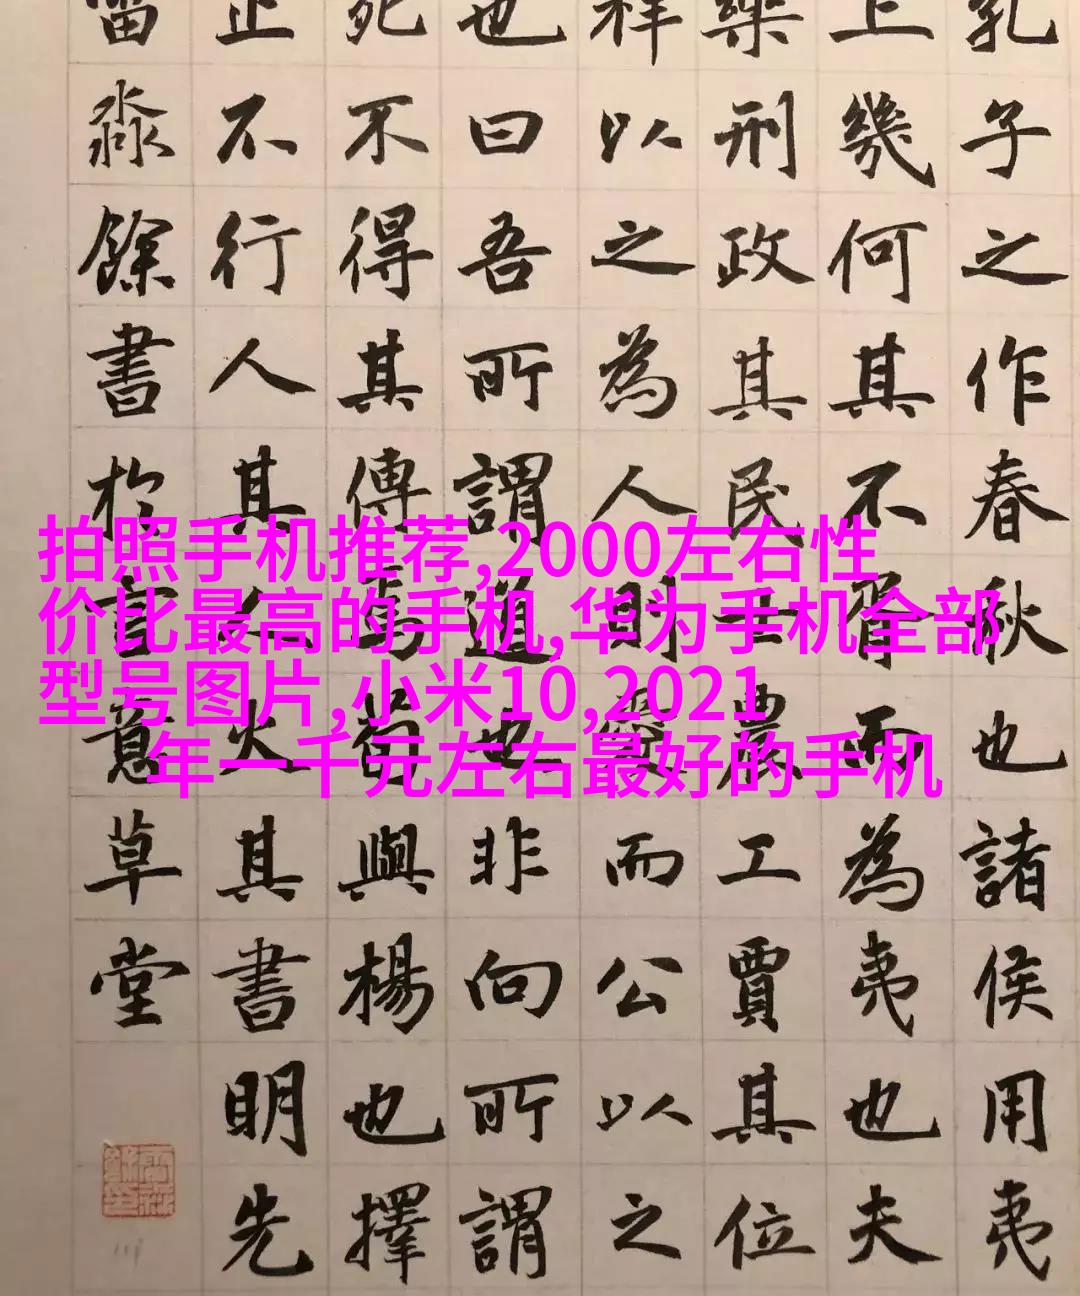 孔子之作春秋也諸侯用夷
上幾何其不胥而為夷也夫
樂刑政其民士農工賈其位
祥以之為人則愛而公以之
也曰吾所謂道也非向所謂
死不得其傳焉荀與楊也擇
止不行人其人火其書明先
淼餘書於意草堂
拍照手机推荐,2000左右性
价比最高的手机,华为手机全部
型号图片,小米10,2021
年一千元左右最好的手机